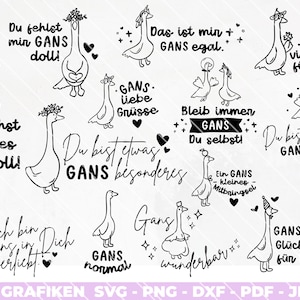 Du fehlst
mir GANS
doll!
Das ist mir
GANS egal.
GANS
liebe
Grüsse
Bleib immer
GANS
Du selbst!
Du bist etwas
GANS besonderes
Ein GANS
kleines
Mitbringsel
ich bin
in Dich
verliebt
GANS
normal
Gans
wunderbar
GANS
Glück
für
GRAFIKEN SVG - PNG - DXF - PDF - J